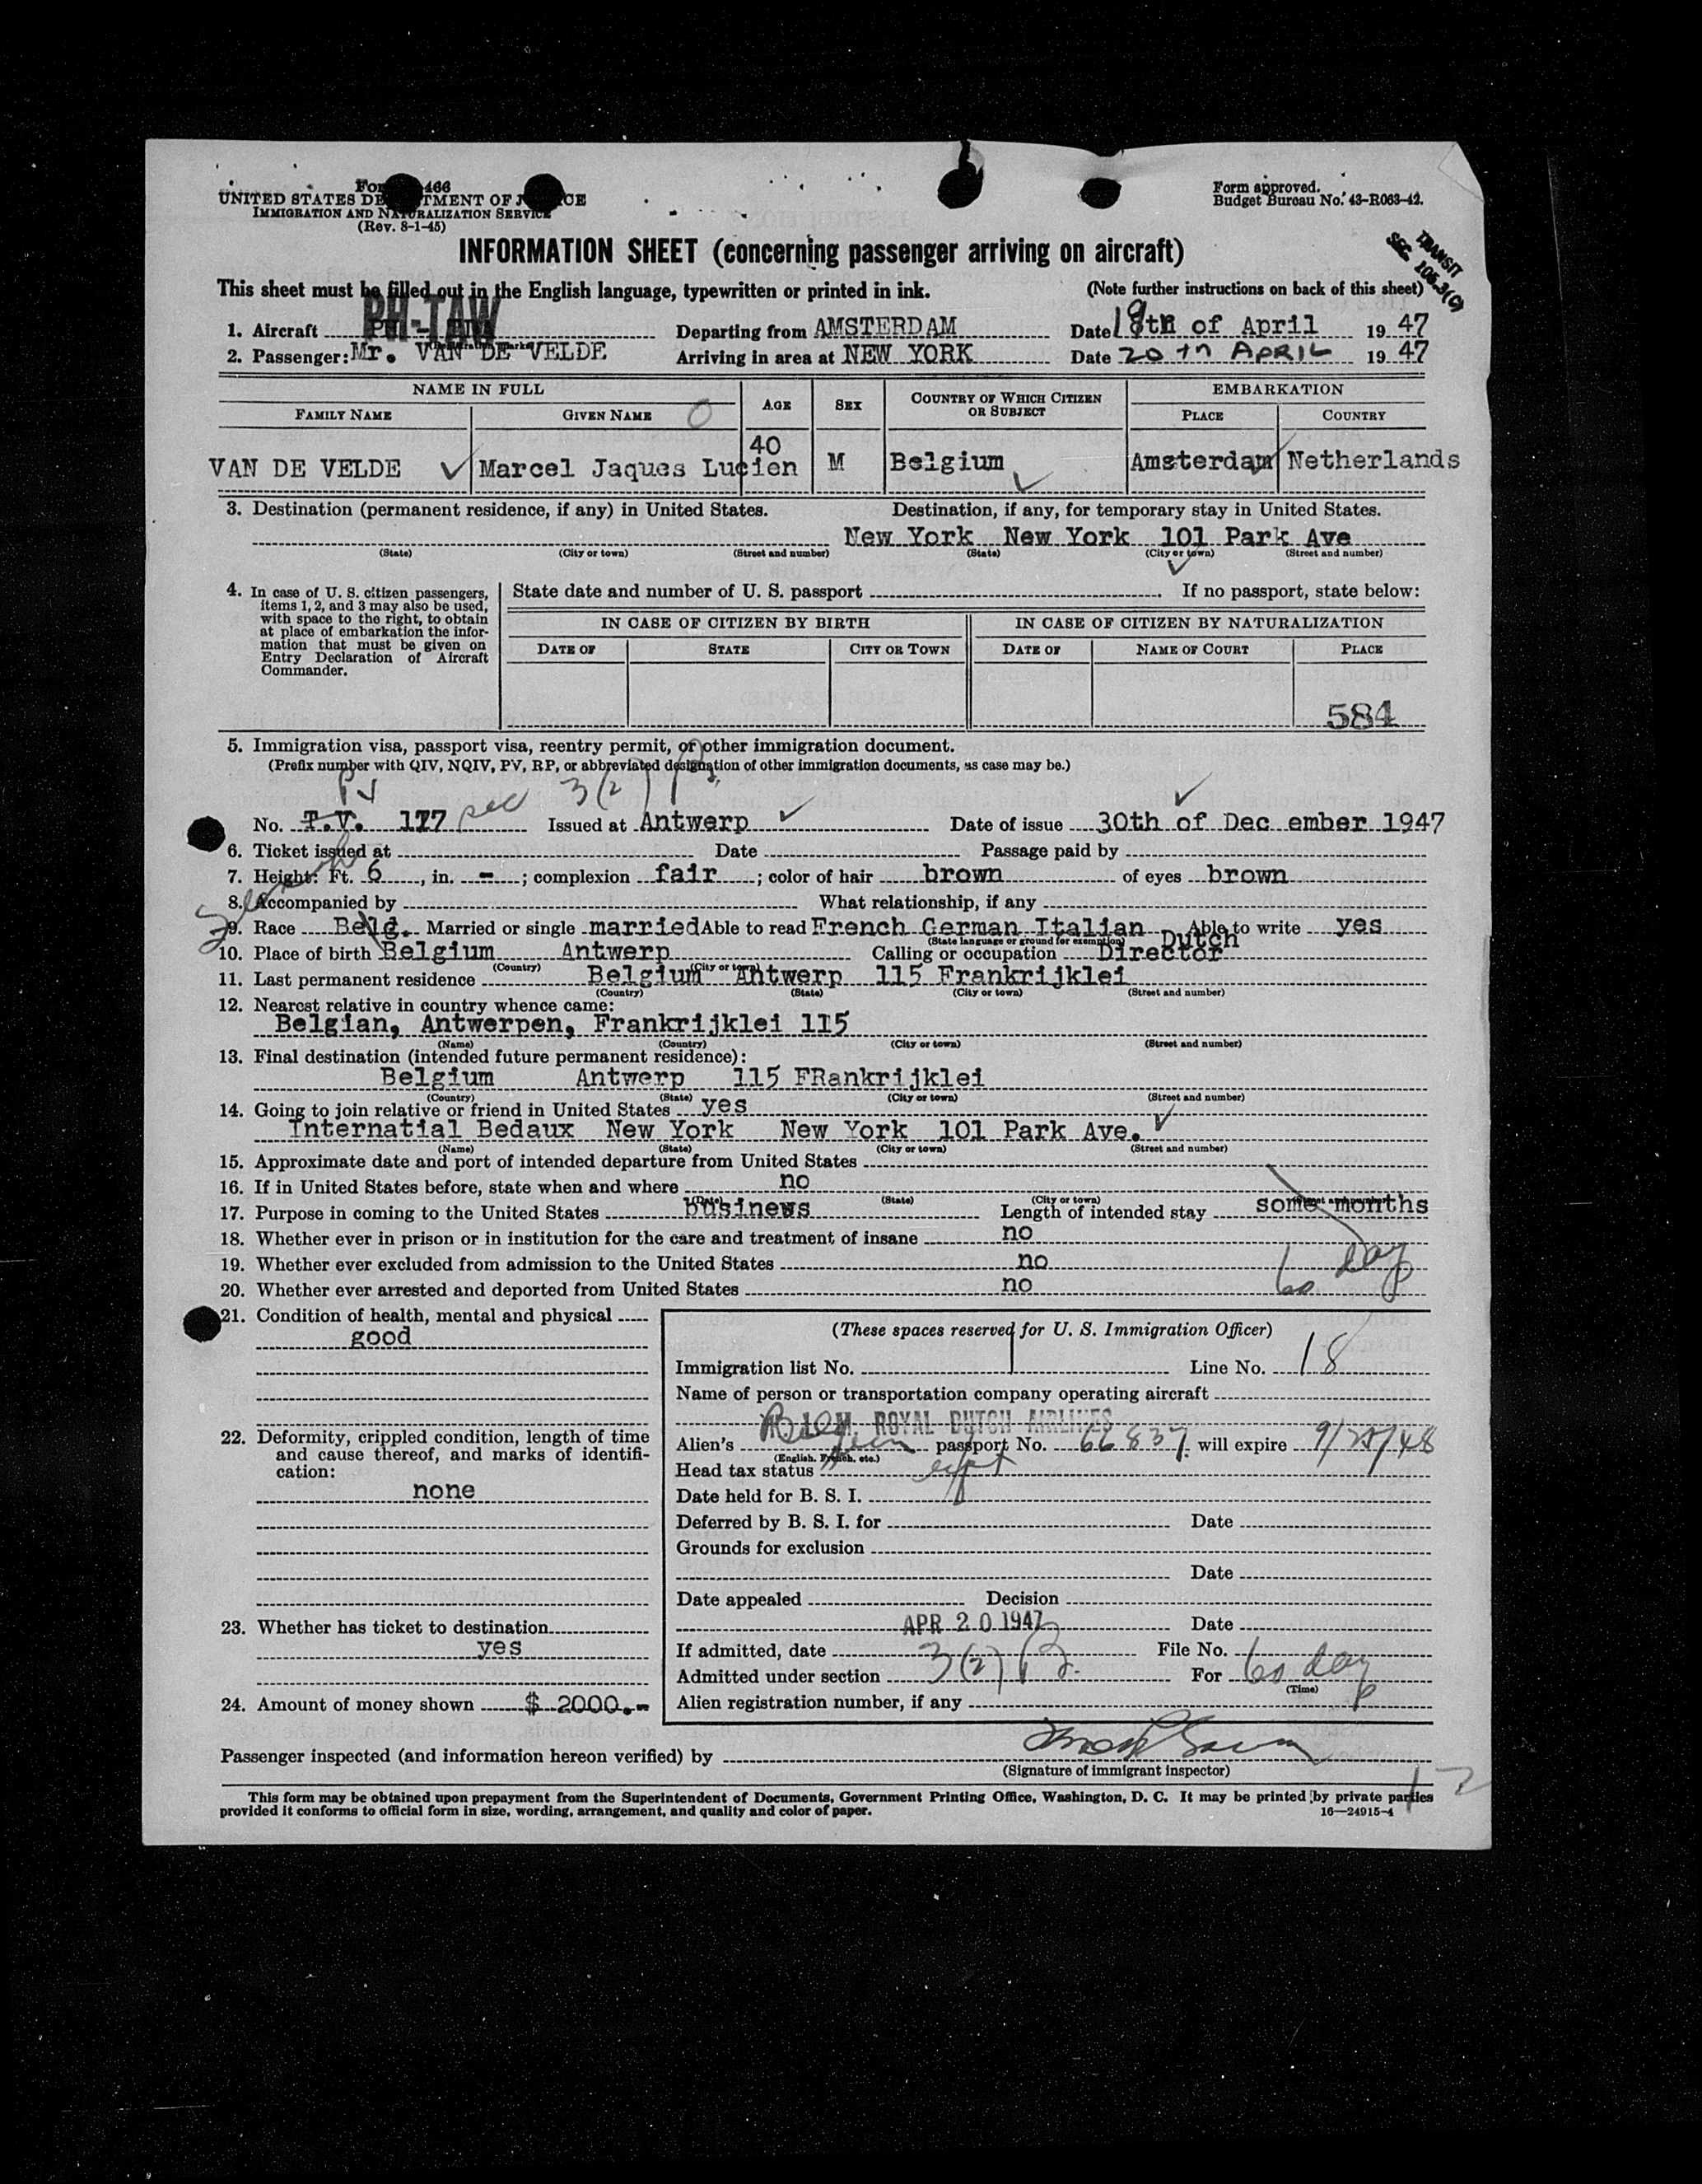 Form 466
UNITED STATES DEPARTMENT OF JUSTICE
IMMIGRATION AND NATURALIZATION SERVICE
(Rev. 8-1-45)
Form approved.
Budget Bureau No. 43-R063-42.
INFORMATION SHEET (concerning passenger arriving on aircraft)
TRANSIT
SEC 105.3(C)
This sheet must be filled out in the English language, typewritten or printed in ink. (Note further instructions on back of this sheet)
PH-TAW
1. Aircraft Departing from AMSTERDAM Date 19th of April 19 47
2. Passenger: Mr. VAN DE VELDE Arriving in area at NEW YORK Date 20TH APRIL 19 47
NAME IN FULL AGE SEX COUNTRY OF WHICH CITIZEN OR SUBJECT EMBARKATION
FAMILY NAME GIVEN NAME PLACE COUNTRY
VAN DE VELDE Marcel Jaques Lucien 40 M Belgium Amsterdam Netherlands
3. Destination (permanent residence, if any) in United States. Destination, if any, for temporary stay in United States.
New York New York 101 Park Ave
(State) (City or town) (Street and number) (State) (City or town) (Street and number)
4. In case of U. S. citizen passengers, items 1, 2, and 3 may also be used, with space to the right, to obtain at place of embarkation the information that must be given on Entry Declaration of Aircraft Commander.
State date and number of U. S. passport If no passport, state below:
IN CASE OF CITIZEN BY BIRTH IN CASE OF CITIZEN BY NATURALIZATION
DATE OF STATE CITY OR TOWN DATE OF NAME OF COURT PLACE
584
5. Immigration visa, passport visa, reentry permit, or other immigration document.
(Prefix number with QIV, NQIV, PV, RP, or abbreviated designation of other immigration documents, as case may be.)
PV sec 3(2)
No. T.V. 177 Issued at Antwerp Date of issue 30th of Dec ember 1947
6. Ticket issued at Date Passage paid by
7. Height: Ft. 6, in. -; complexion fair; color of hair brown of eyes brown
8. Accompanied by What relationship, if any
9. Race Belg. Married or single married Able to read French German Italian Dutch Able to write yes
(State language or ground for exemption)
10. Place of birth Belgium Antwerp Calling or occupation Director
(Country) (City or town)
11. Last permanent residence Belgium Antwerp 115 Frankrijklei
(Country) (State) (City or town) (Street and number)
12. Nearest relative in country whence came:
Belgian, Antwerpen, Frankrijklei 115
(Name) (Country) (City or town) (Street and number)
13. Final destination (intended future permanent residence):
Belgium Antwerp 115 FRankrijklei
(Country) (State) (City or town) (Street and number)
14. Going to join relative or friend in United States yes
Internatial Bedaux New York New York 101 Park Ave.
(Name) (State) (City or town) (Street and number)
15. Approximate date and port of intended departure from United States
16. If in United States before, state when and where no
(Date) (State) (City or town) (Street and number)
17. Purpose in coming to the United States businews Length of intended stay some months
18. Whether ever in prison or in institution for the care and treatment of insane no
60 day
19. Whether ever excluded from admission to the United States no
20. Whether ever arrested and deported from United States no
21. Condition of health, mental and physical
good
22. Deformity, crippled condition, length of time and cause thereof, and marks of identification:
none
23. Whether has ticket to destination
yes
24. Amount of money shown $ 2000.-
(These spaces reserved for U. S. Immigration Officer)
Immigration list No. Line No. 18
Name of person or transportation company operating aircraft
K. L. M. ROYAL DUTCH AIRLINES
Alien's Belgium passport No. 66837 will expire 9/25/48
(English, French, etc.)
Head tax status
Date held for B. S. I.
Deferred by B. S. I. for Date
Grounds for exclusion
Date
Date appealed Decision
APR 20 1947 Date
If admitted, date File No.
Admitted under section 3(2) For 60 day
(Time)
Alien registration number, if any
Passenger inspected (and information hereon verified) by
(Signature of immigrant inspector)
This form may be obtained upon prepayment from the Superintendent of Documents, Government Printing Office, Washington, D. C. It may be printed by private parties
provided it conforms to official form in size, wording, arrangement, and quality and color of paper. 16—24915-4